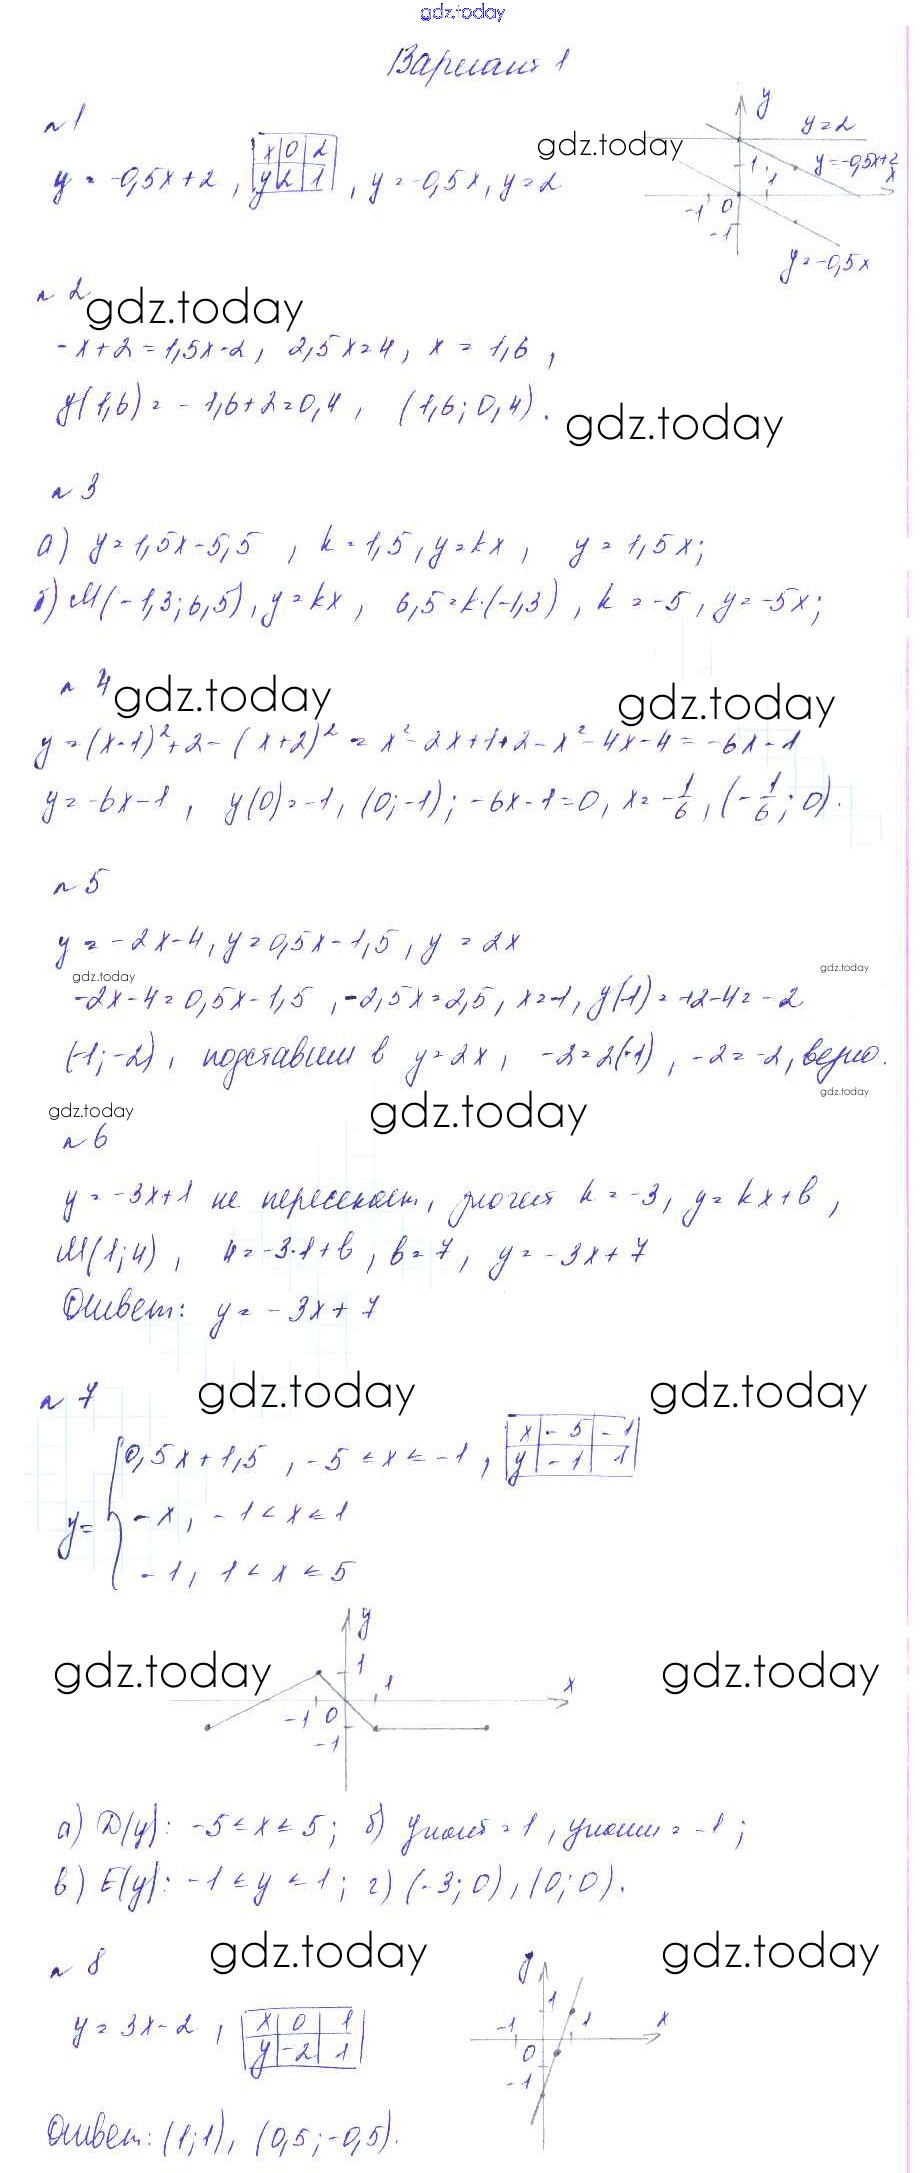 gdz.today
Вариант 1
n 1
y = -0,5x+2, x 0 2 y 2 1, y = -0,5x, y=2
y
y=2
y=-0,5x+2
x
1
1
-1 0
-1
y=-0,5x
gdz.today
n 2
gdz.today
-x+2=1,5x-2, 2,5x=4, x = 1,6,
y(1,6)= -1,6+2=0,4, (1,6; 0,4).
gdz.today
n 3
а) y=1,5x-5,5, k=1,5, y=kx, y=1,5x;
б) M(-1,3; 6,5), y=kx, 6,5=k·(-1,3), k=-5, y=-5x;
n 4
gdz.today
gdz.today
y=(x-1)²+2-(x+2)² = x²-2x+1+2-x²-4x-4=-6x-1
y=-6x-1, y(0)=-1, (0;-1); -6x-1=0, x=-1/6, (-1/6; 0).
n 5
y=-2x-4, y=0,5x-1,5, y=2x
gdz.today
gdz.today
-2x-4=0,5x-1,5, -2,5x=2,5, x=-1, y(-1)=+2-4=-2
(-1;-2), подставим в y=2x, -2=2(-1), -2=-2, верно.
gdz.today
gdz.today
gdz.today
n 6
y=-3x+1 не пересекает, значит k=-3, y=kx+b,
M(1;4), 4=-3·1+b, b=7, y=-3x+7
Ответ: y=-3x+7
gdz.today
gdz.today
n 7
0,5x+1,5, -5≤x≤-1, x -5 -1 y -1 1
y= -x, -1<x≤1
-1, 1<x≤5
y
1
1
x
-1 0
-1
gdz.today
gdz.today
а) D(y): -5≤x≤5; б) yнаиб=1, yнаим=-1;
в) E(y): -1≤y≤1; г) (-3;0), (0;0).
n 8
gdz.today
gdz.today
y=3x-2, x 0 1 y -2 1
y
1
-1
1
x
0
-1
Ответ: (1;1), (0,5;-0,5).